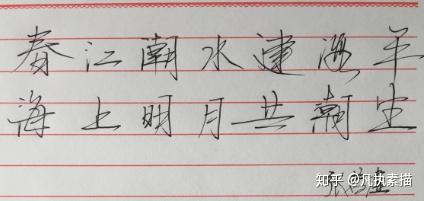 春江潮水連海平
海上明月共潮生
张若虚
知乎 @凡执素描